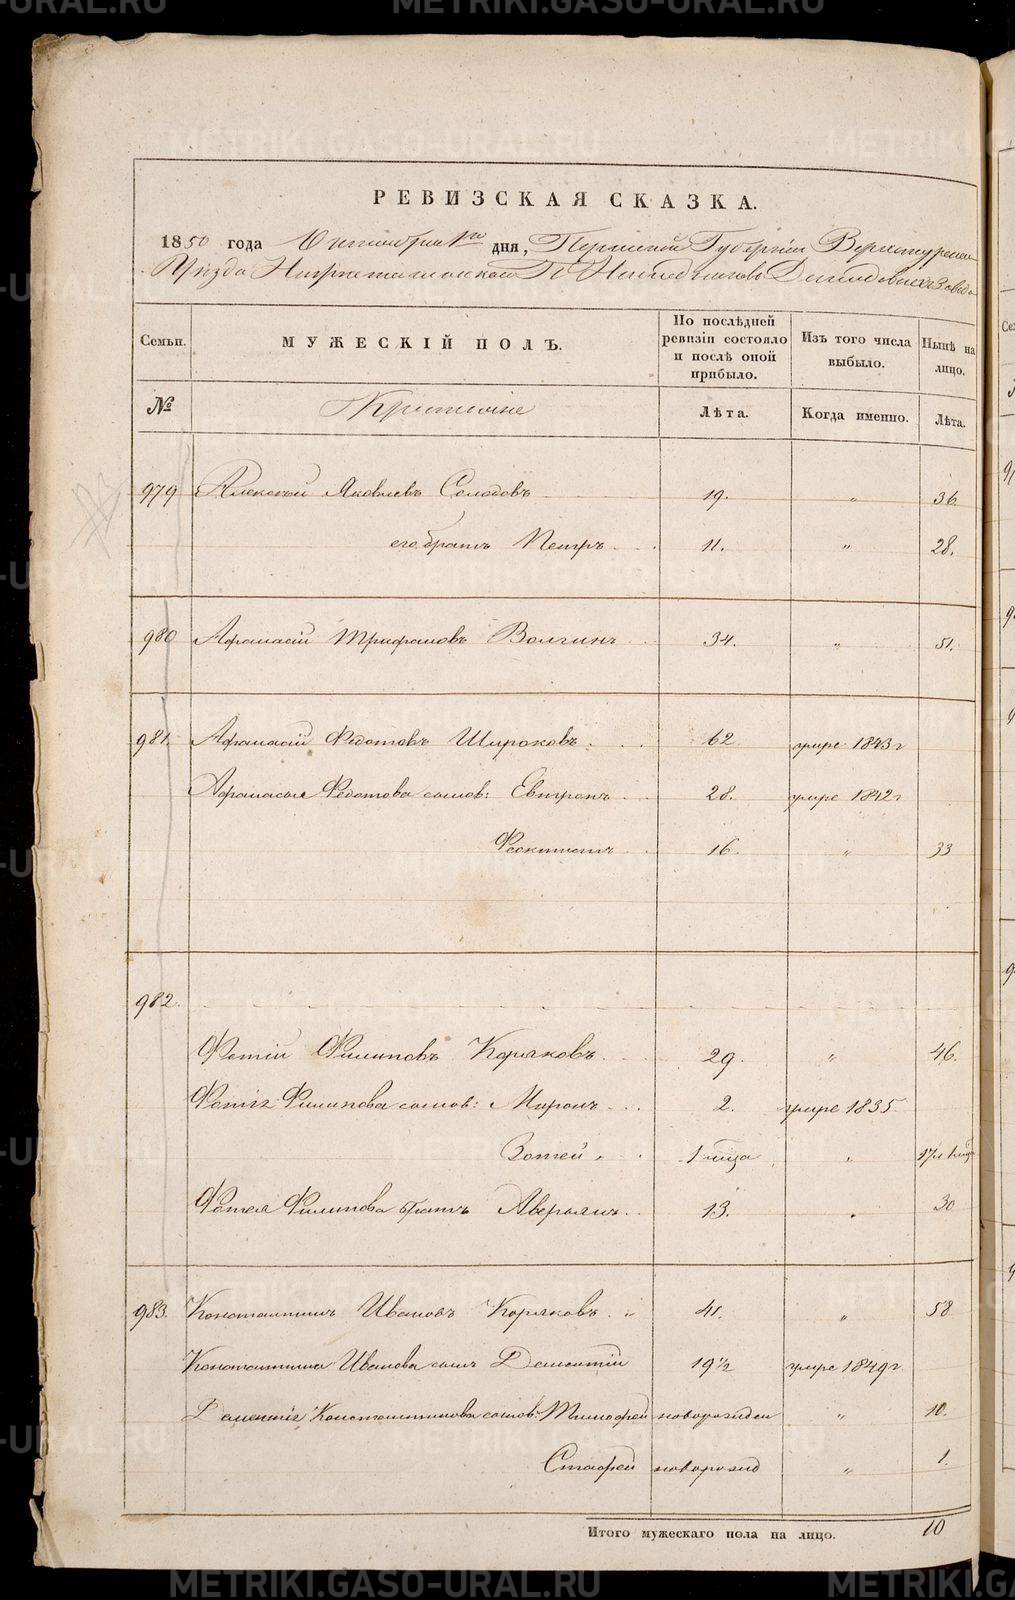 METRIKI.GASO-URAL.RU
РЕВИЗСКАЯ СКАЗКА.
1850 года Октября 1го дня, Пермской Губернии Верхотурскаго
Уѣзда Нижнетагильскаго Г. Наслѣдниковъ Демидовыхъ Завода
Семьи. МУЖЕСКІЙ ПОЛЪ. По послѣдней ревизіи состояло и послѣ оной прибыло. Изъ того числа выбыло. Нынѣ на лицо.
№ Лѣта. Когда именно. Лѣта.
979 Алексѣй Яковлевъ Солодовъ 19. " 36.
его братъ Петръ 11. " 28.
980 Афанасій Трифановъ Волгинъ 34. " 51.
981. Афанасій Федотовъ Широковъ 62 умре 1843 г
Афанасья Федотова сынов: Евтропъ 28. умре 1842 г
Феоктистъ 16. " 33
982.
Фотій Филиповъ Коряковъ 29. " 46.
Фотія Филипова сынов: Миронъ 2. умре 1835
Зотей 1 мѣся " 17 л 1 мѣс
Фотея Филипова братъ Аверьянъ 13. " 30
983. Констаптинъ Ивановъ Коряковъ 41. " 58
Константина Иванова сынъ Дементій 19½ умре 1849 г.
Дементія Константинова сынов: Тимофей новорожден " 10.
Стафей новорожд " 1.
Итого мужескаго пола на лицо. 10